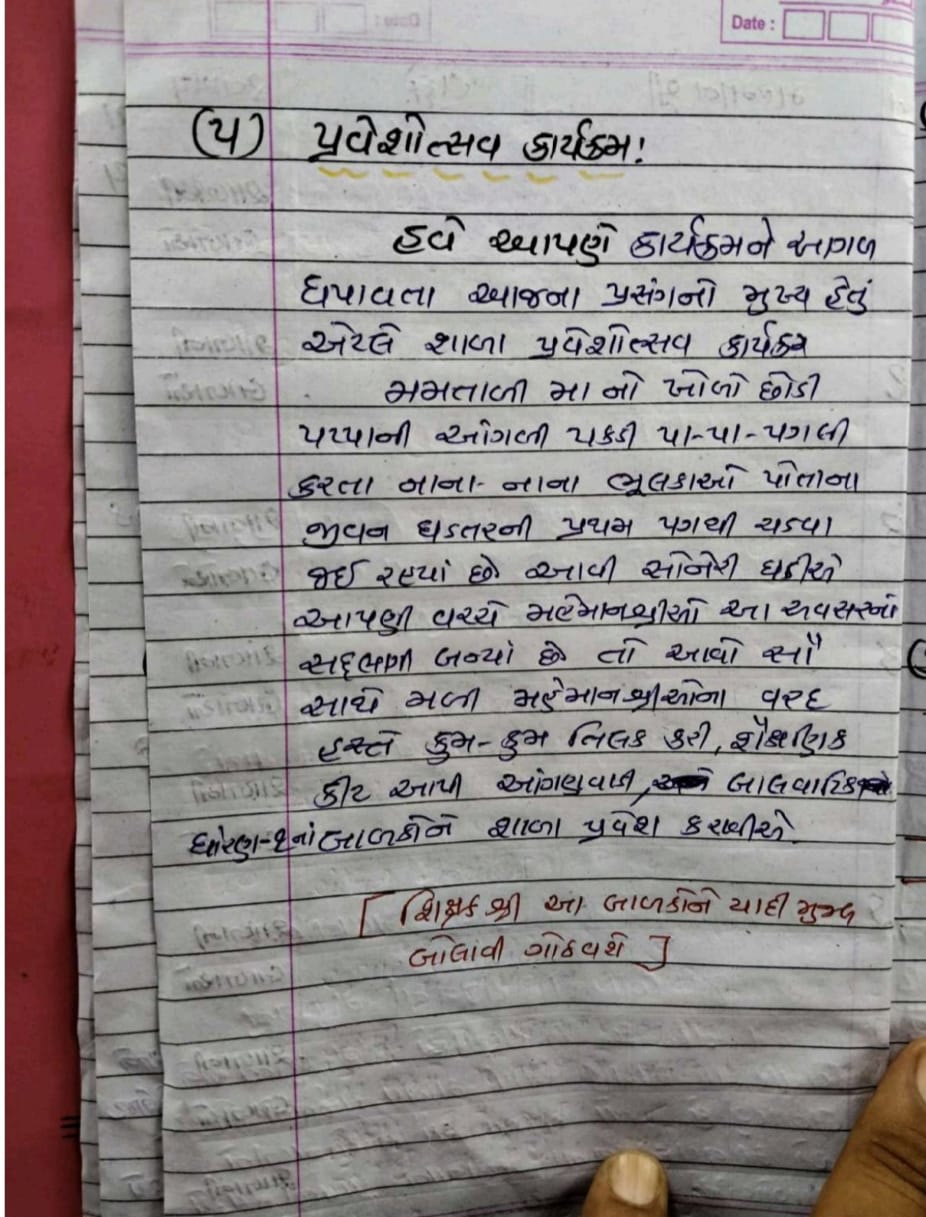 Date :
(૫) પ્રવેશોત્સવ કાર્યક્રમ!
હવે આપણે કાર્યક્રમને આગળ
ધપાવતા આજના પ્રસંગનો મુખ્ય હેતું
એટલે શાળા પ્રવેશોત્સવ કાર્યક્રમ
મમતાળી મા નો ખોળો છોડી
પપ્પાની આંગળી પકડી પા-પા-પગલી
કરતા નાના-નાના ભૂલકાઓ પોતાના
જીવન ઘડતરની પ્રથમ પગથી ચડવા
જઈ રહ્યાં છે આવી સોનેરી ઘડીએ
આપણી વચ્ચે મહેમાનશ્રીઓ આ અવસરનાં
સદ્દભાગી બન્યાં છે તો આવો સૌ
સાથે મળી મહેમાનશ્રીઓના વરદ
હસ્તે કુમ-કુમ તિલક કરી, શૈક્ષણિક
કીટ આપી આંગણવાડી, બાલવાટિકા
ધોરણ-૧નાં બાળકોને શાળા પ્રવેશ કરાવીએ
[ શિક્ષક શ્રી આ બાળકોને યાદી મુજબ
બોલાવી ગોઠવશે ]